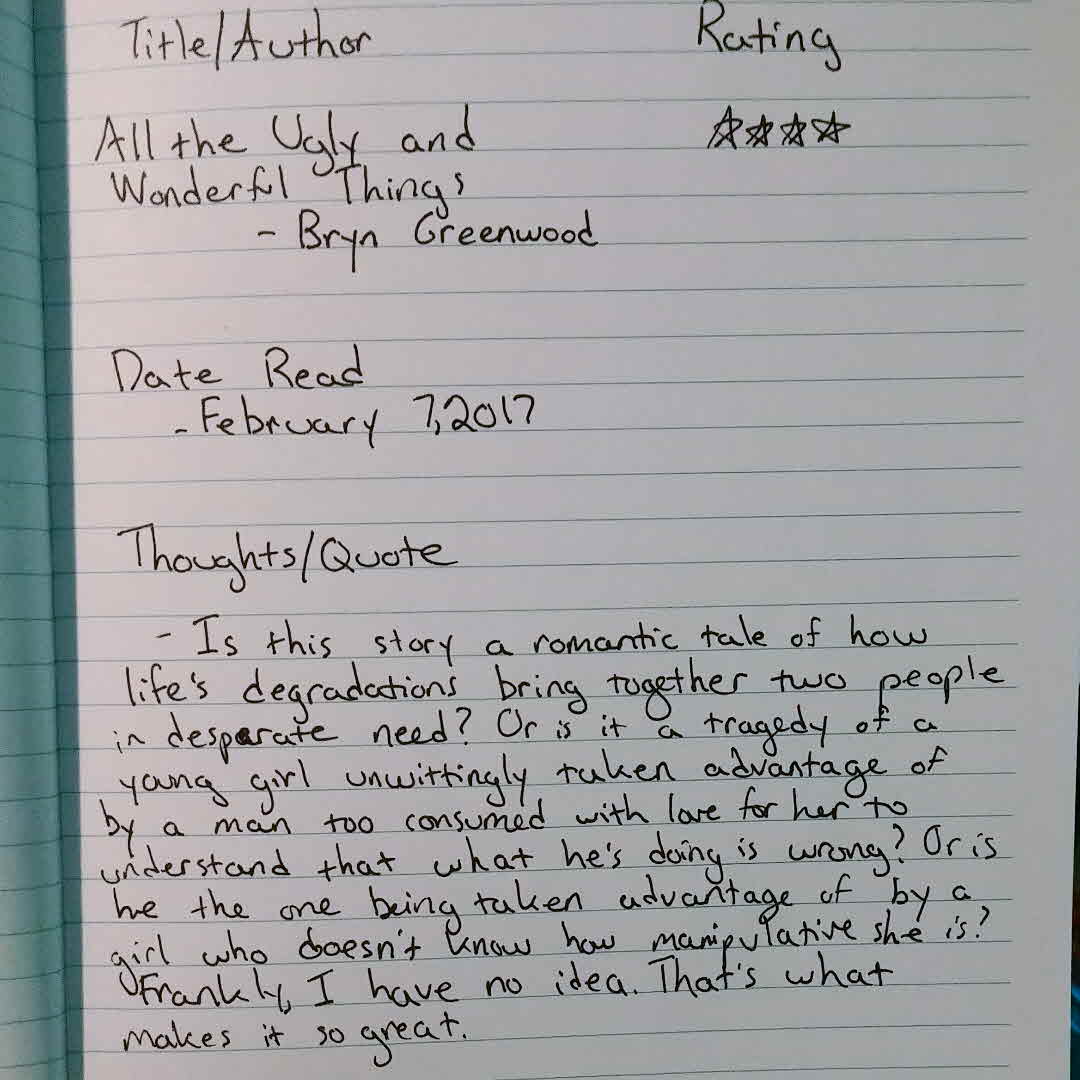 Title/Author Rating
All the Ugly and ☆☆☆☆
Wonderful Things
- Bryn Greenwood
Date Read
- February 7, 2017
Thoughts/Quote
- Is this story a romantic tale of how
life's degradations bring together two people
in desparate need? Or is it a tragedy of a
young girl unwittingly taken advantage of
by a man too consumed with love for her to
understand that what he's doing is wrong? Or is
he the one being taken advantage of by a
girl who doesn't know how manipulative she is?
Frankly, I have no idea. That's what
makes it so great.